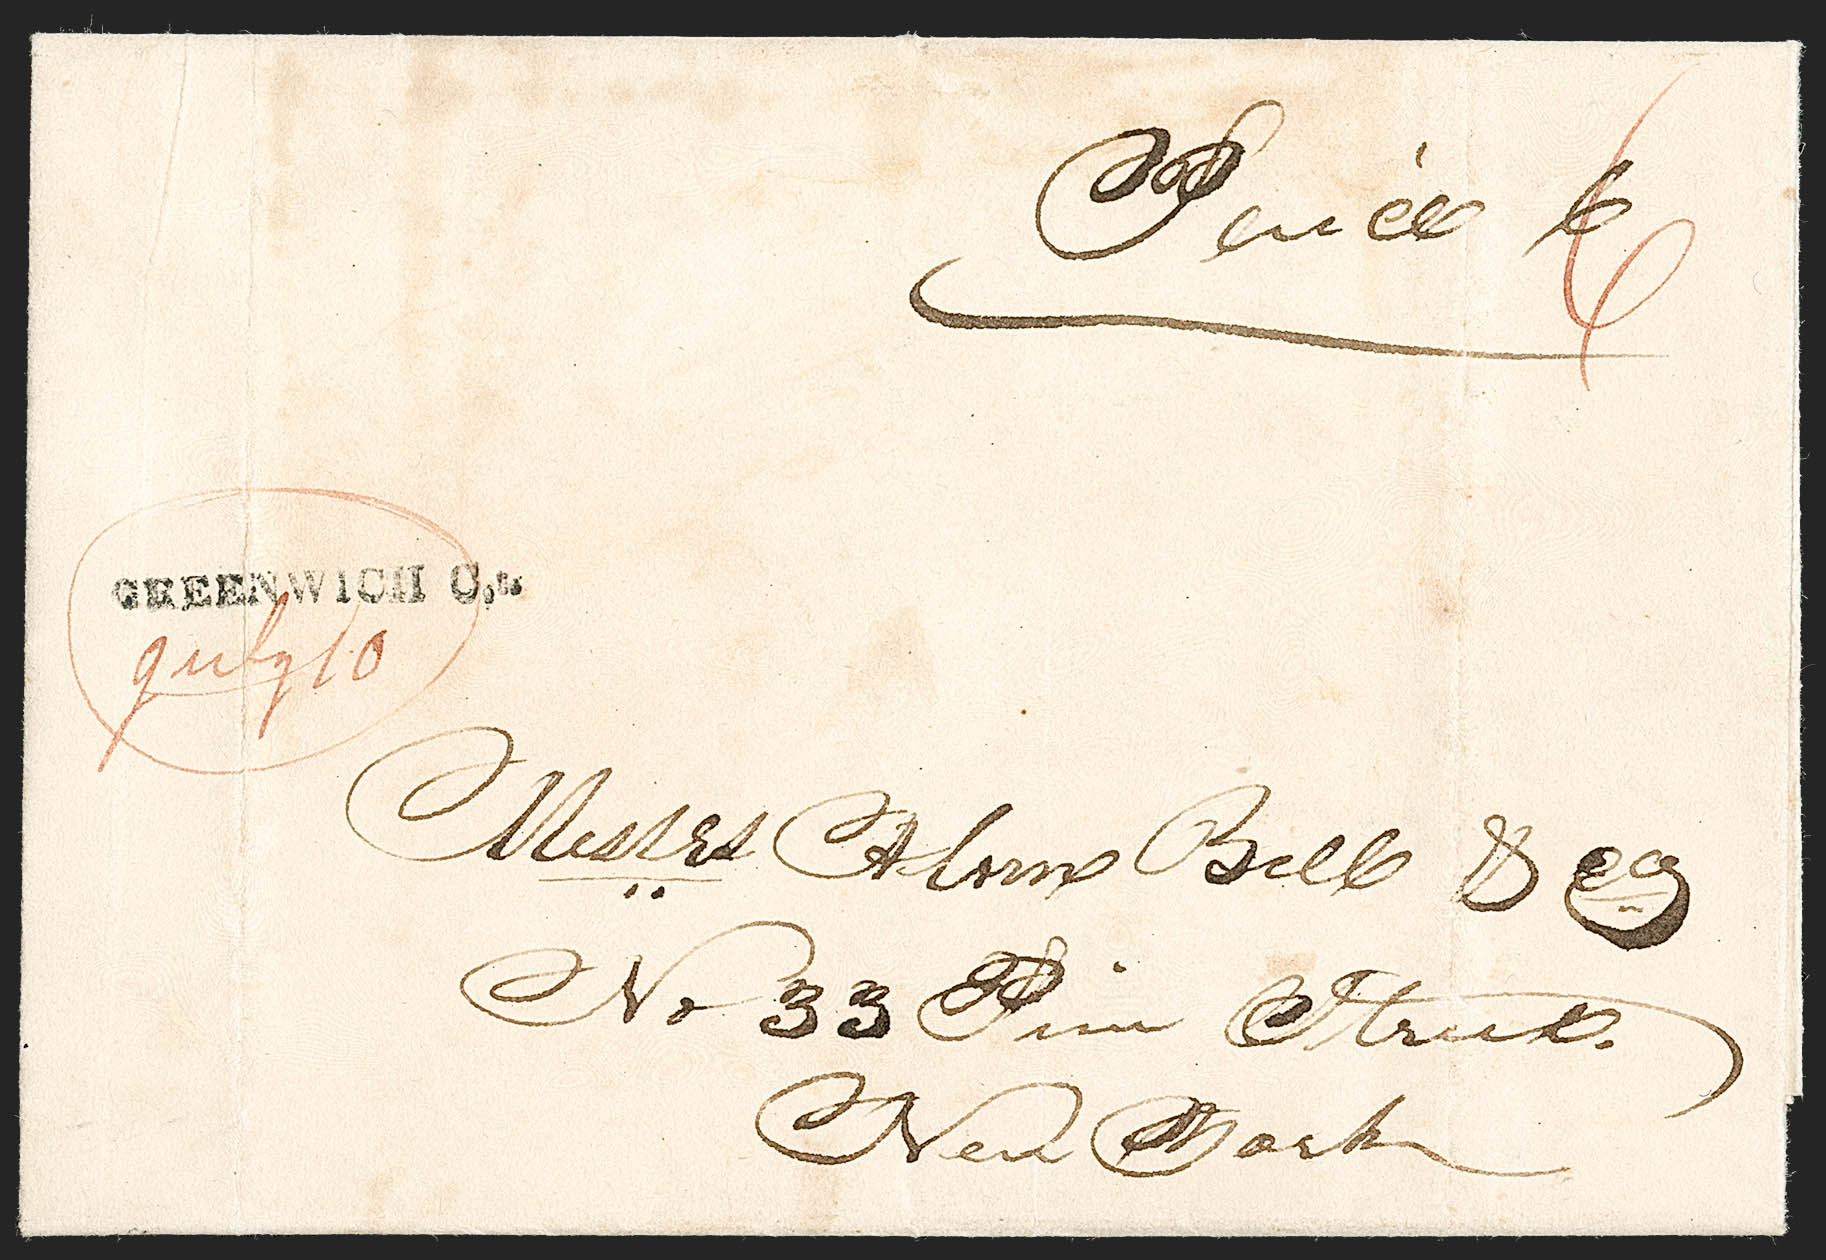 6
GREENWICH C.t
July 10
Messrs Bell & Co
No 33 Pine Street.
New York